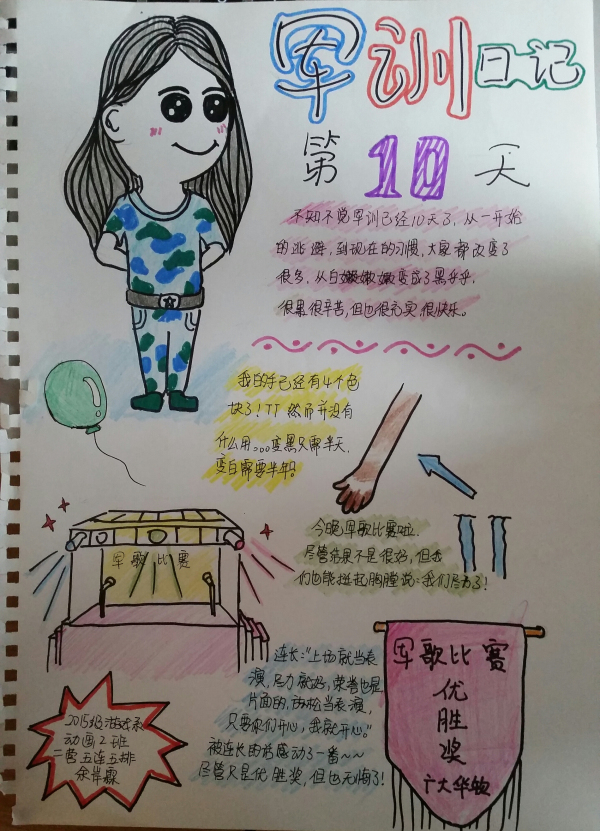 军训日记
第10天
不知不觉军训已经10天了,从一开始
的逃避,到现在的习惯,大家都改变了
很多,从白嫩嫩嫩变成了黑乎乎.
很累很辛苦,但也很充实很快乐。
我的手已经有4个色
块了!TT 然而并没有
什么用。。。变黑只需半天.
变白需要半年。
今晚军歌比赛啦.
尽管结果不是很好,但我
们也能挺起胸膛说:我们尽力了!
军歌比赛
连长:"上场就当表
演,尽力就好,荣誉也是
片面的,放松当表演,
只要你们开心,我就开心。"
被连长的话感动了一番~~
尽管只是优胜奖,但也无悔了!
军歌比赛
优
胜
奖
广大华软
2015级游戏系
动画2班
二营五连五排
余